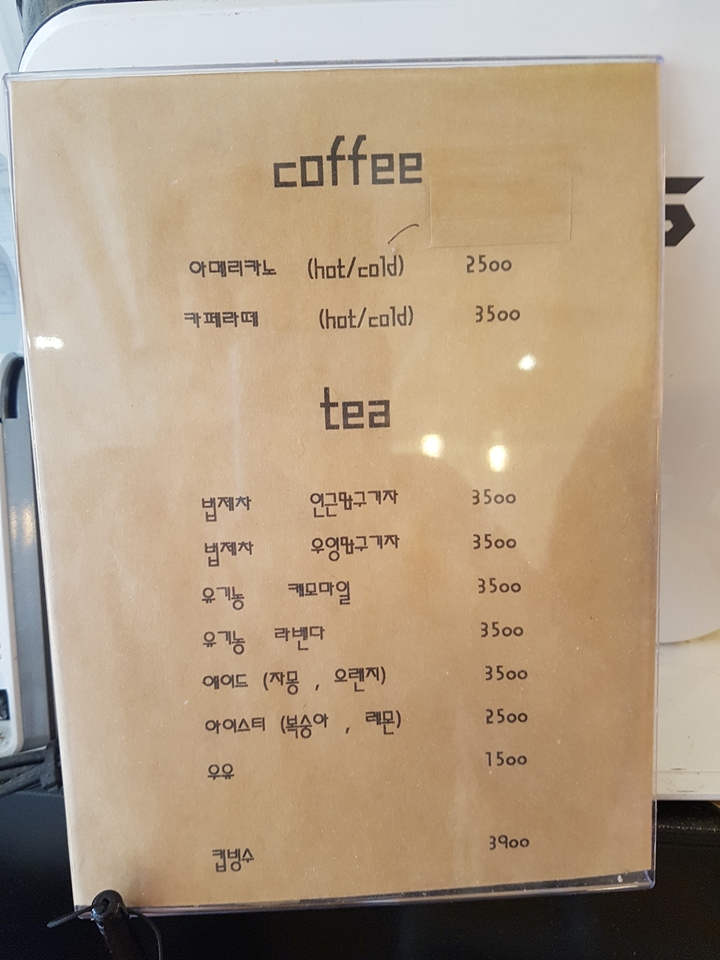 coffee
아메리카노 (hot/cold) 2500
카페라떼 (hot/cold) 3500
tea
법제차 연근맘구기자 3500
법제차 우엉맘구기자 3500
유기농 케모마일 3500
유기농 라벤다 3500
에이드 (자몽 , 오렌지) 3500
아이스티 (복숭아 , 레몬) 2500
우유 1500
컵빙수 3900